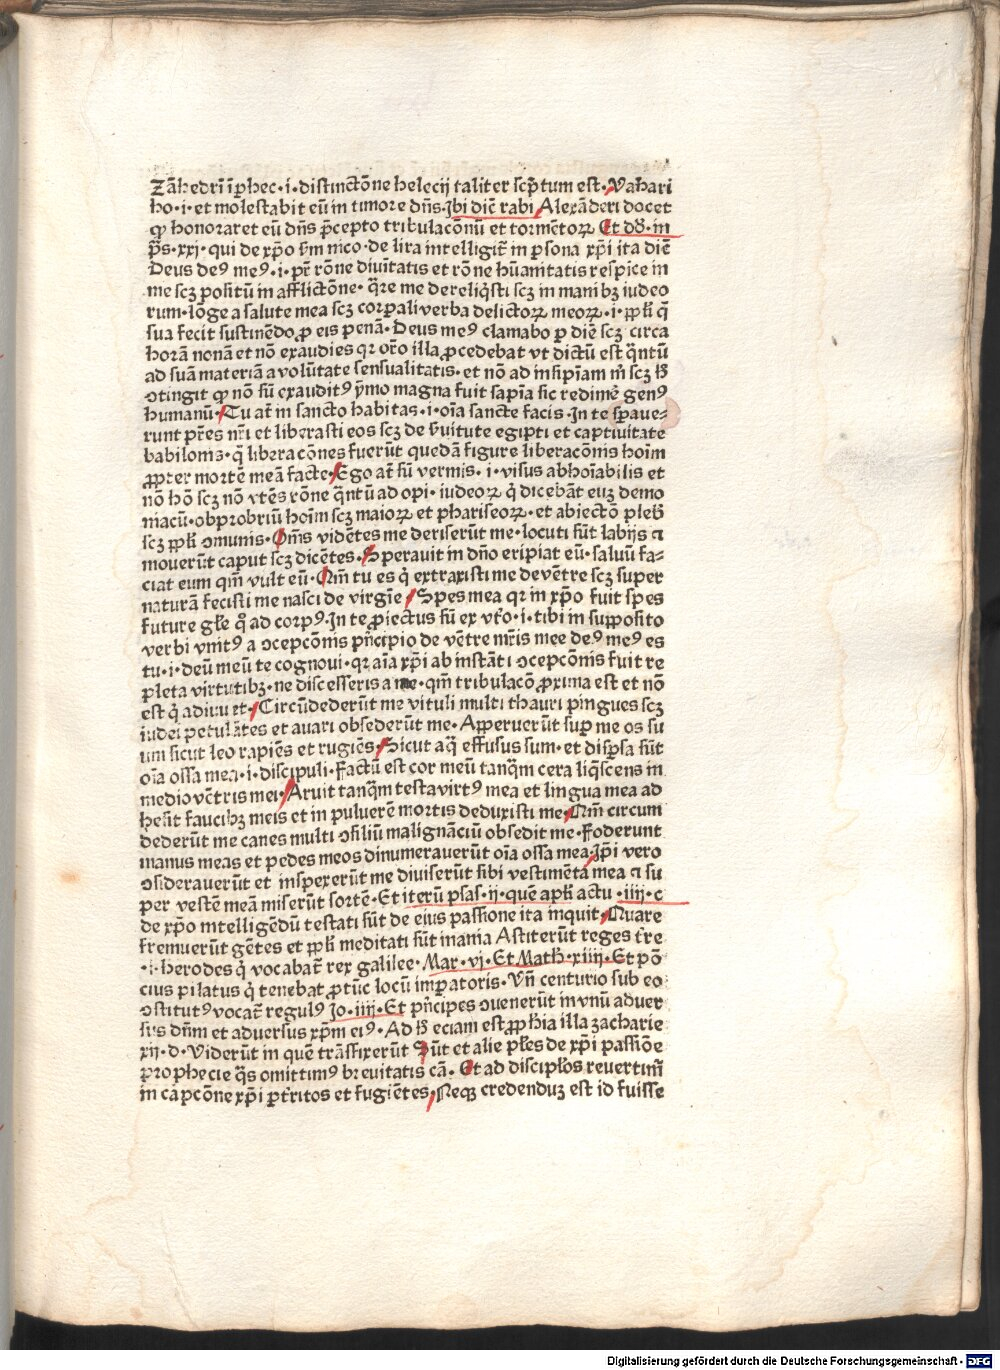 Zāhedrī ī ꝑhec·i·distinctōne helecij taliter scp̄tum est·Vahari
ho·i·et molestabit eū in timore dn̄s·Jbi diē rabi Alexāderi docet
ꝙ honoraret eū dn̄s p̄cepto tribulacōnū et tormētoꝝ Et dd·in
p̄s·xxj·qui de xp̄o ẜm nico·de lira intelligit̄ in ꝑsona xp̄i ita diē
Deus deꝰ meꝰ·i·pr̄ rōne diuītatis et rōne hūanitatis respice in
me scꝫ positū in afflictōne·q̄re me dereliq̇sti scꝫ in manibꝫ iudeo
rum·lōge a salute mea scꝫ corꝑali verba delictoꝝ meoꝝ·i·ꝓpl̄i q̄
sua fecit sustinēdo ꝓ eis penā·Deus meꝰ clamabo ꝑ diē scꝫ circa
horā nonā et nō exaudies qꝛ or̄o illa ꝓcedebat vt dictū est q̄ntū
ad suā materiā a volūtate sensualitatis·et nō ad insipiam m̄ scꝫ h̄
ↄtingit ꝙ nō sū exauditꝰ ȳmo magna fuit sapīa sic redimē̄ genꝰ
humanū·Tu at̄ in sancto habitas·i·oīa sancte facis·In te sꝑaue-
runt pr̄es nr̄i et liberasti eos scꝫ de ẜuitute egipti et captiuitate
babilonis·q̄ liberacōnes fuerūt quedā figure liberacōnis hoīm
ꝓpter mortē meā facte·Ego at̄ sū vermis·i·visus abhoīabilis et
nō hō scꝫ nō vtēs rōne q̄ntū ad opi·iudeoꝝ q̇ dicebāt euꝫ demo
niacū·obprobriū hoīm scꝫ maioꝝ et phariseoꝝ·et abiectō pleb̄
scꝫ ꝓpl̄i ↄmunis·Om̄s vidētes me deriserūt me·locuti sūt labijs ⁊
mouerūt caput scꝫ dicētes·Sperauit in dn̄o eripiat eū·saluū fa-
ciat eum qm̄ vult eū·Qm̄ tu es q̇ extraxisti me de vētre scꝫ super
naturā fecisti me nasci de virgīe Spes mea qꝛ in xp̄o fuit spes
future gl̄e q̊ ad corpꝰ·In te ꝓiectus sū ex vt̄o·i·tibi in supposito
verbi vnitꝰ a ↄcepcōnis p̄ncipio de vētre mr̄is mee deꝰ meꝰ es
tu·i·deū meū te cognoui·qꝛ aīa xp̄i ab instāti ↄcepcōnis fuit re
pleta virtutibꝫ·ne discesseris a me·qm̄ tribulacō ꝓxima est et nō
est q̇ adiuuet·Circūdederūt me vituli multi thauri pingues scꝫ
iudei petulātes et auari obsederūt me·Aꝑperuerūt suꝑ me os su
um sicut leo rapiēs et rugiēs·Sicut aq̄ effusus sum·et disꝑsa sūt
oīa ossa mea·i·discipuli·Factū est cor meū tanq̄m cera liq̇scens in
medio vētris mei·Aruit tanq̄m testa virtꝰ mea et lingua mea ad
hesit faucibꝫ meis et in puluerē mortis deduxisti me·Qm̄ circum
dederūt me canes multi ↄsiliū malignāciū obsedit me·Foderunt
manus meas et pedes meos dinumerauerūt oīa ossa mea·Ip̄i vero
ↄsiderauerūt et inspexerūt me diuiserūt sibi vestimēta mea ⁊ su
per vestē meā miserūt sortē·Et iterū psas·ij·quē apl̄i actu·iiij·c
de xp̄o intelligēdū testati sūt de eius passione ita inquit·Quare
fremuerūt gētes et ꝓpl̄i meditati sūt inania Astiterūt reges t̄re
·i·herodes q̇ vocabat̄ rex galilee·Mar·vj·Et Math̄·xiiij·Et pō
cius pilatus q̇ tenebat ꝓtūc locū imꝑatoris·Vn̄ centurio sub eo
ↄstitutꝰ vocat̄ regulꝰ Jo·iiij·Et p̄ncipes ↄuenerūt in vnū aduer
sus dn̄m et aduersus xp̄m eiꝰ·Ad h̄ eciam est ꝓph̄ia illa zacharie
xij·d·Viderūt in quē trāsfixerūt Sūt et alie pl̄es de xp̄i passiōe
prophecie q̄s omittimꝰ breuitatis cā·Et ad discipl̄os reuertim̄
in capcōne xp̄i ꝑt̄ritos et fugiētes·Neqꝫ credenduꝫ est id fuisse
Digitalisierung gefördert durch die Deutsche Forschungsgemeinschaft - DFG